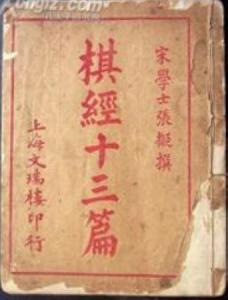 宋學士張擬撰
棋經十三篇
上海文瑞樓印行